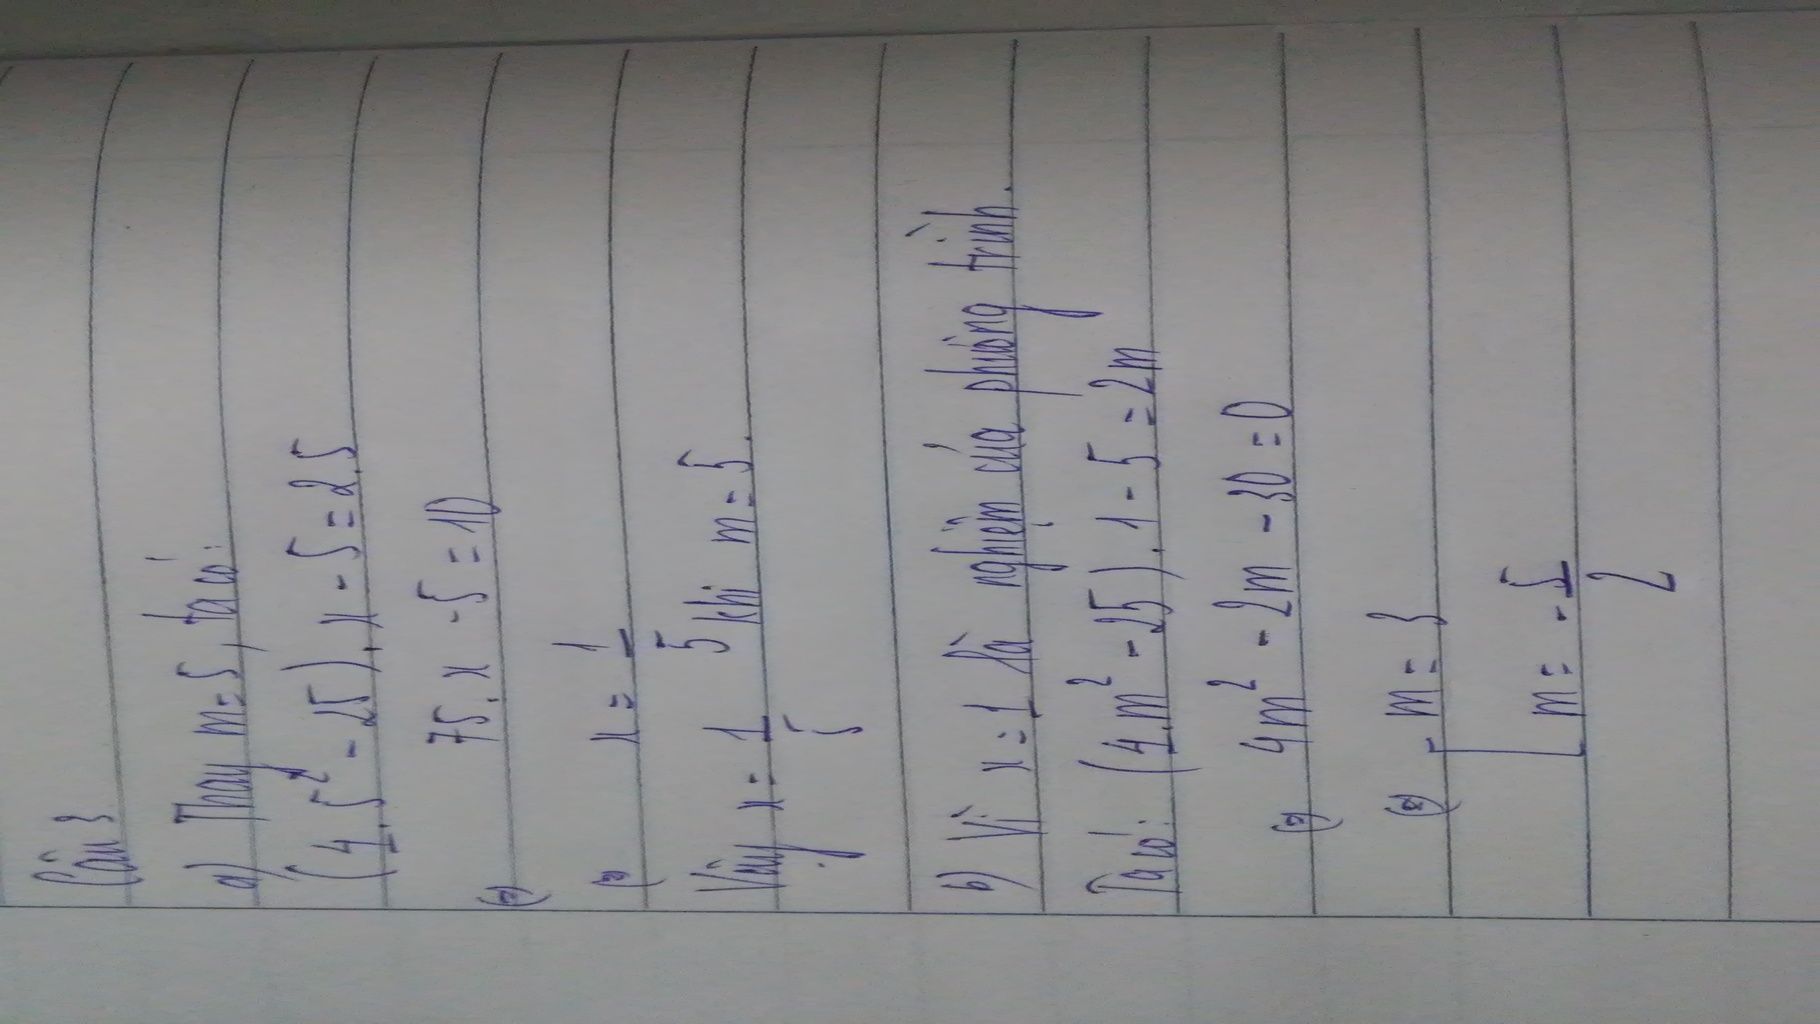 Câu 3
a) Thay m=5, ta có:
(4.5² - 25).x - 5 = 2.5
(=) 75.x - 5 = 10
(=) x = 1/5
Vậy x = 1/5 khi m = 5.
b) Vì x = 1 là nghiệm của phương trình.
Ta có: (4.m² - 25).1 - 5 = 2m
(=) 4m² - 2m - 30 = 0
(=) [ m = 3
m = -5/2